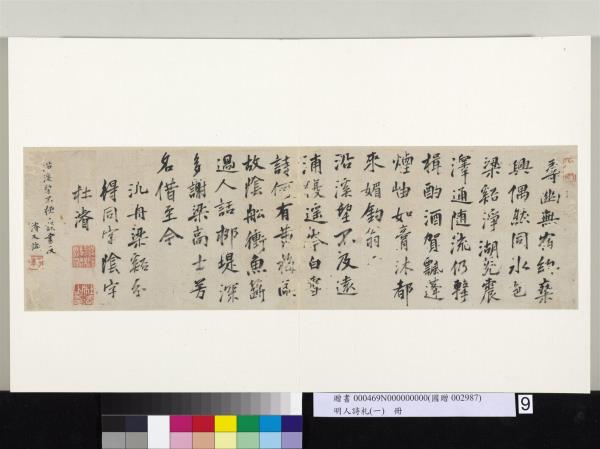 尋幽無有約乘
興偶然同水色
梁谿淨湖光震
澤通隨流仍轉
楫酌酒賀飄蓬
煙岫如膏沐都
來媚釣翁
沿溪望不及遠
浦漫遙岑白雪
詩何有黃梅
故陰船衝魚籪
過人話柳堤深
多謝梁高士芳
名借至今
汎舟梁谿分
得同字陰字
杜濬
沿溪望不極誤書及
濬又
贈書 000469N000000000(國贈 002987)
明人詩札(一) 冊
9